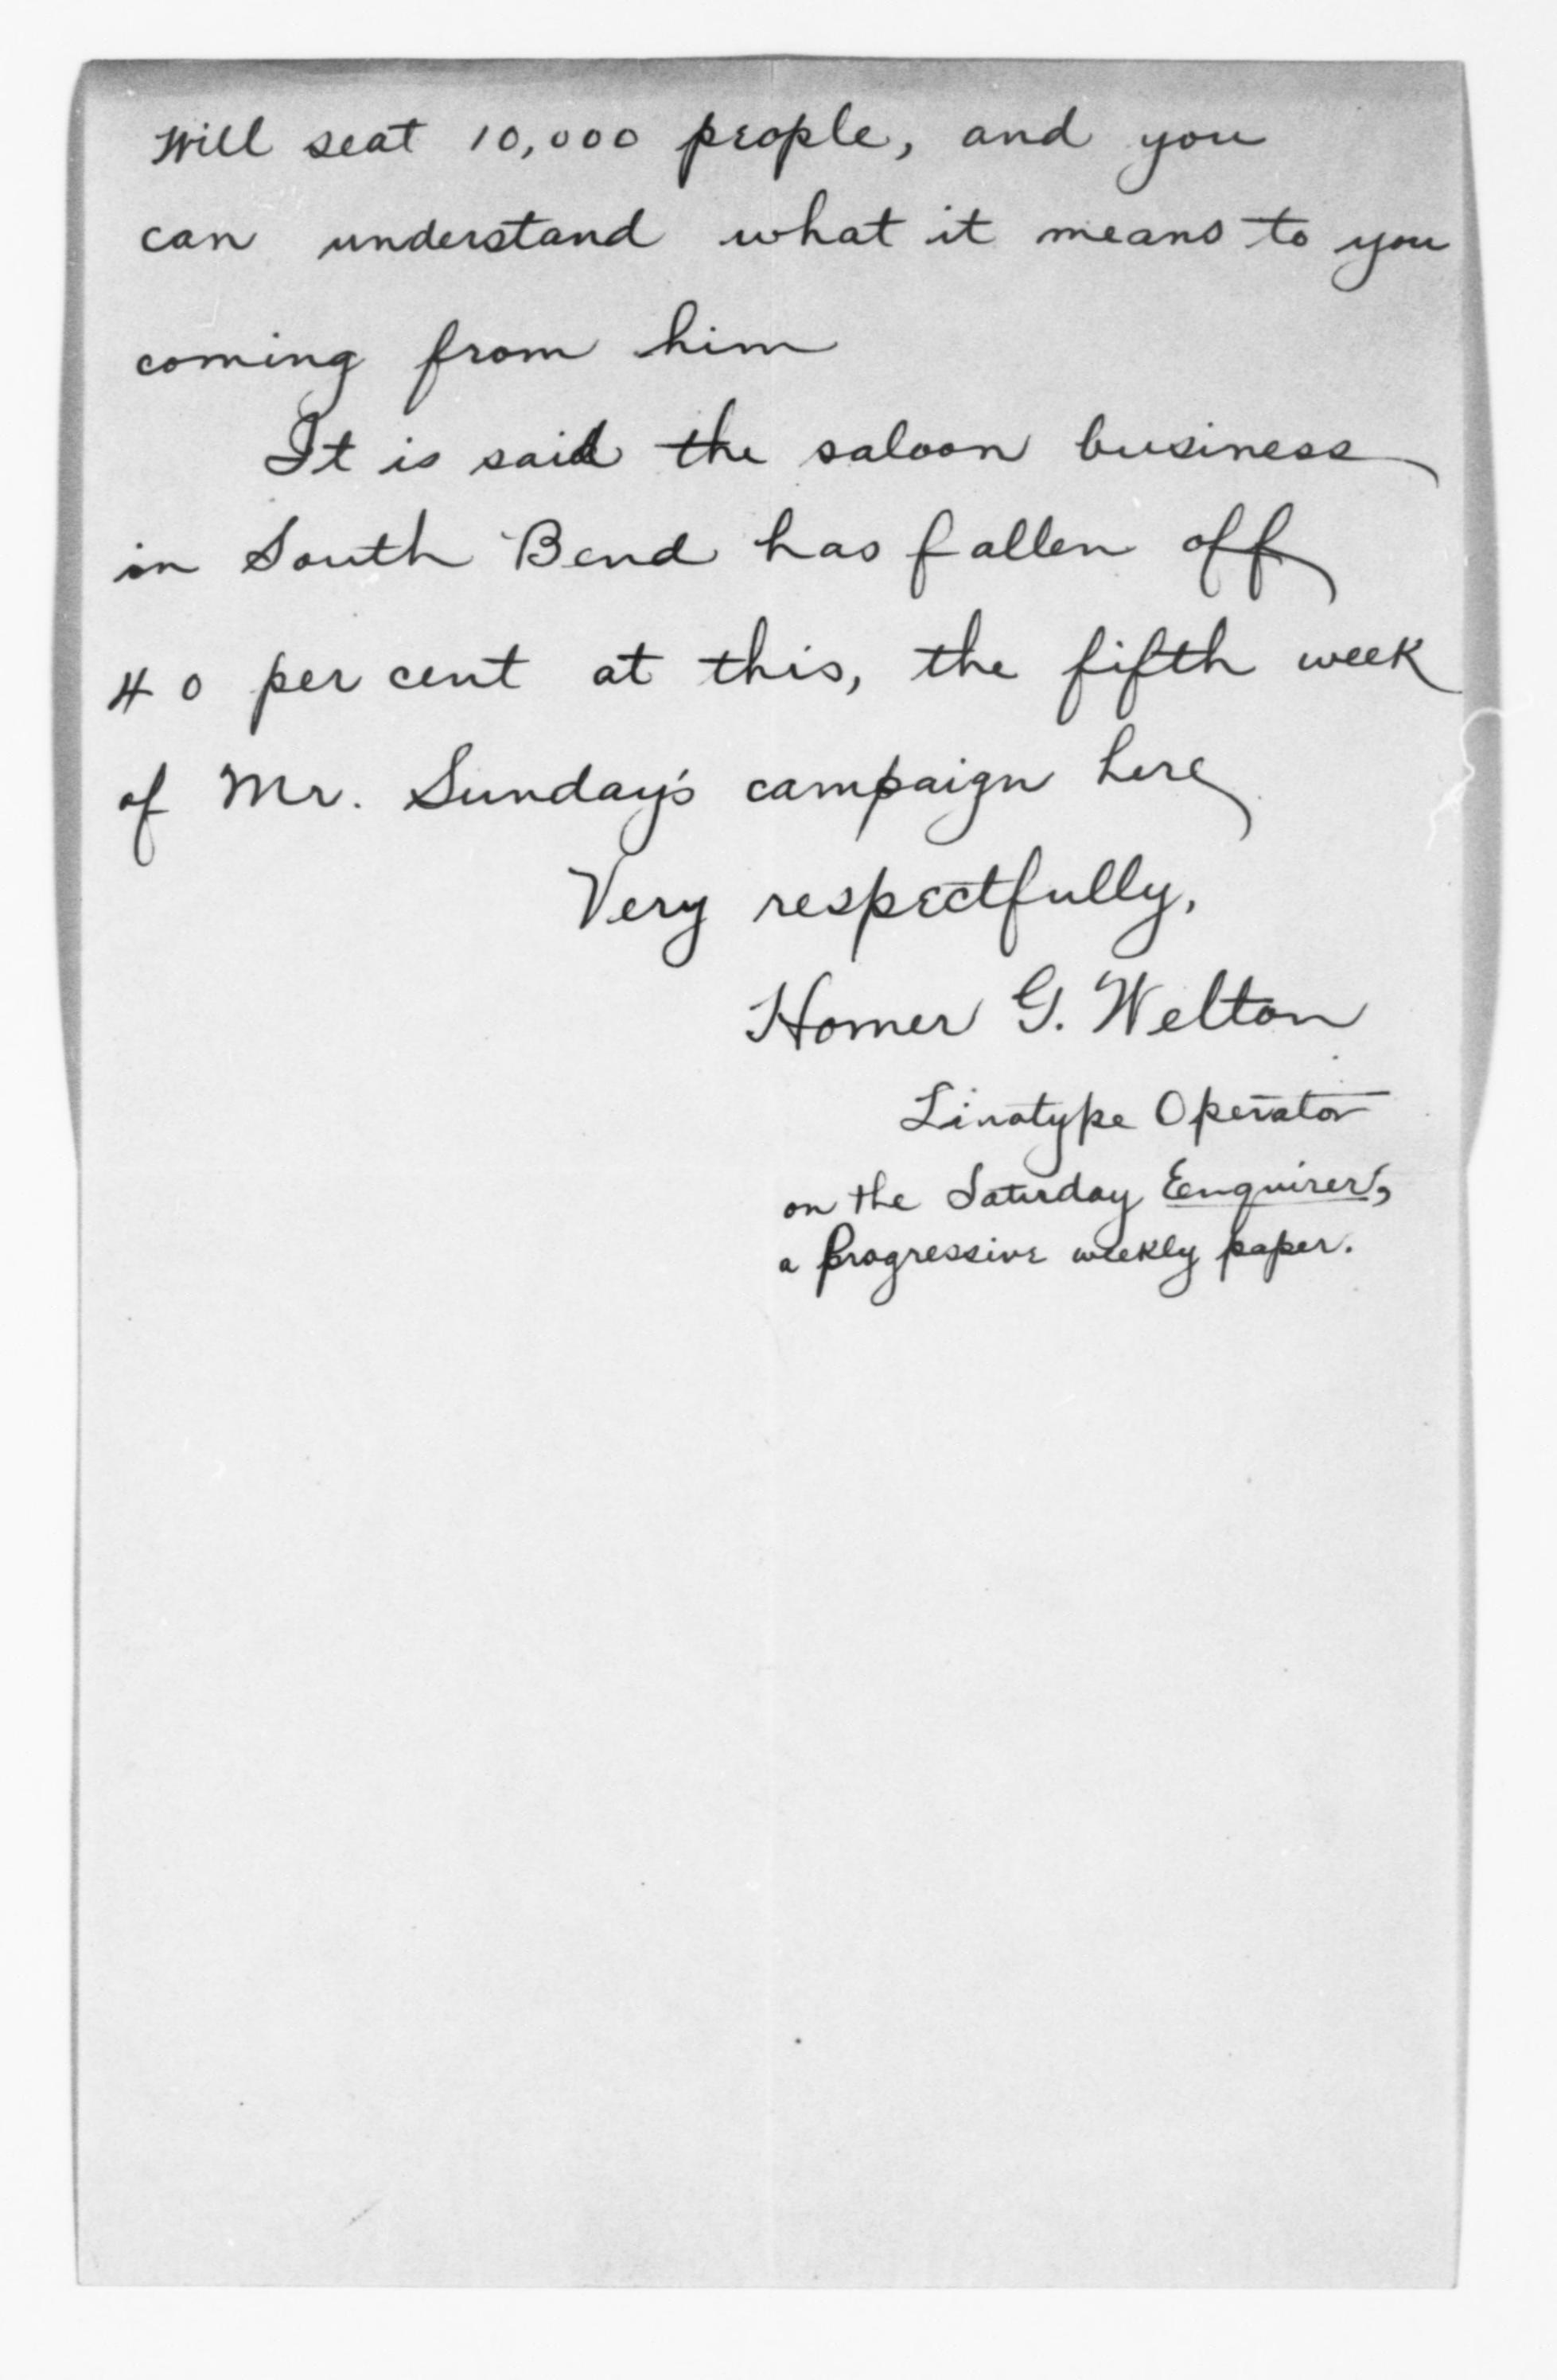 will seat 10,000 people, and you
can understand what it means to you
coming from him
It is said the saloon business
in South Bend has fallen off
40 per cent at this, the fifth week
of Mr. Sunday's campaign here
Very respectfully,
Homer G. Welton
Linotype Operator
on the Saturday Enquirer,
a Progressive weekly paper.